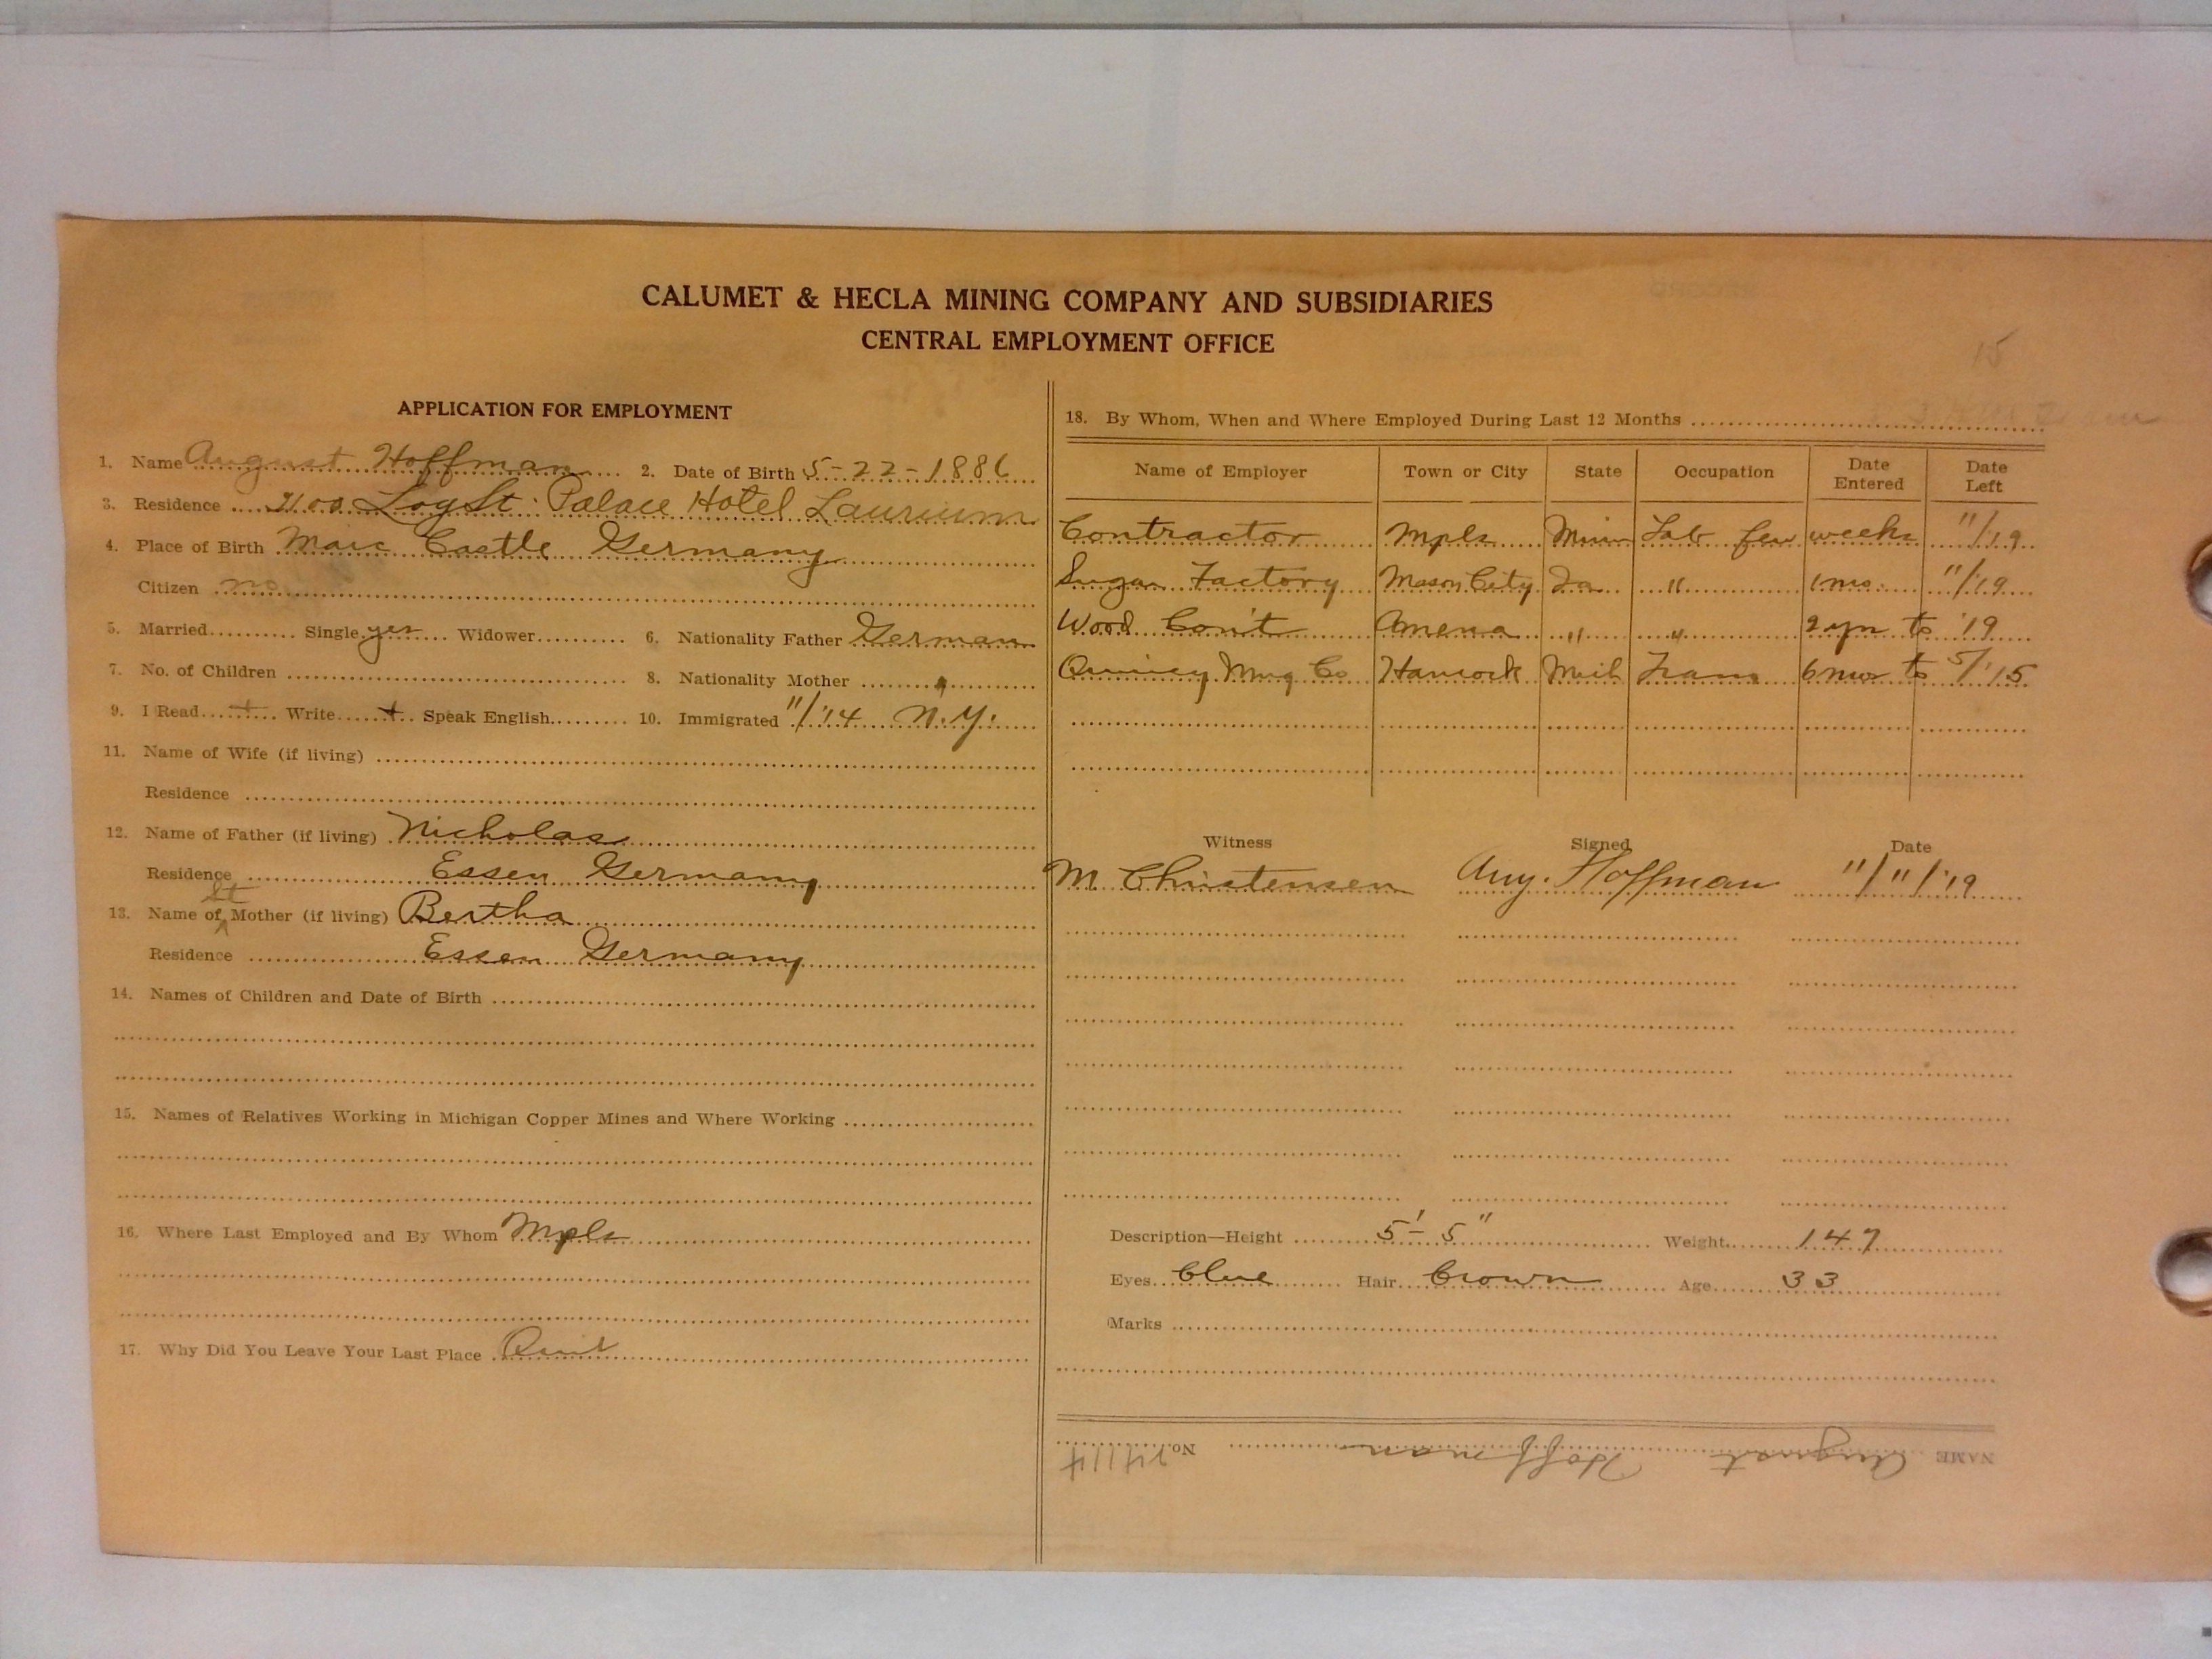 CALUMET & HECLA MINING COMPANY AND SUBSIDIARIES
CENTRAL EMPLOYMENT OFFICE
15
APPLICATION FOR EMPLOYMENT
1. Name August Hoffman 2. Date of Birth 5-22-1886
3. Residence Log St. Palace Hotel Laurium
4. Place of Birth Castle Germany
Citizen no
5. Married Single yes Widower 6. Nationality Father German
7. No. of Children 8. Nationality Mother "
9. I Read + Write + Speak English 10. Immigrated 11/'14 N.Y.
11. Name of Wife (if living)
Residence
12. Name of Father (if living) Nicholas
Residence Essen Germany
13. Name of St Mother (if living) Bertha
Residence Essen Germany
14. Names of Children and Date of Birth
15. Names of Relatives Working in Michigan Copper Mines and Where Working
16. Where Last Employed and By Whom Mpls
17. Why Did You Leave Your Last Place Quit
18. By Whom, When and Where Employed During Last 12 Months
Name of Employer Town or City State Occupation Date Entered Date Left
Contractor Mpls Minn Lab few weeks 11/19
Sugar Factory Mason City Ia " 1 mo. 11/19
Wood Con't Amena " " 2 yrs to '19
Quincy Mng Co Hancock Mich Tram 6 mos to 5/'15
Witness Signed Date
M Christensen Aug. Hoffman 11/11/'19
Description—Height 5'- 5" Weight 147
Eyes blue Hair brown Age 33
Marks
NAME August Hoffman No. 14114